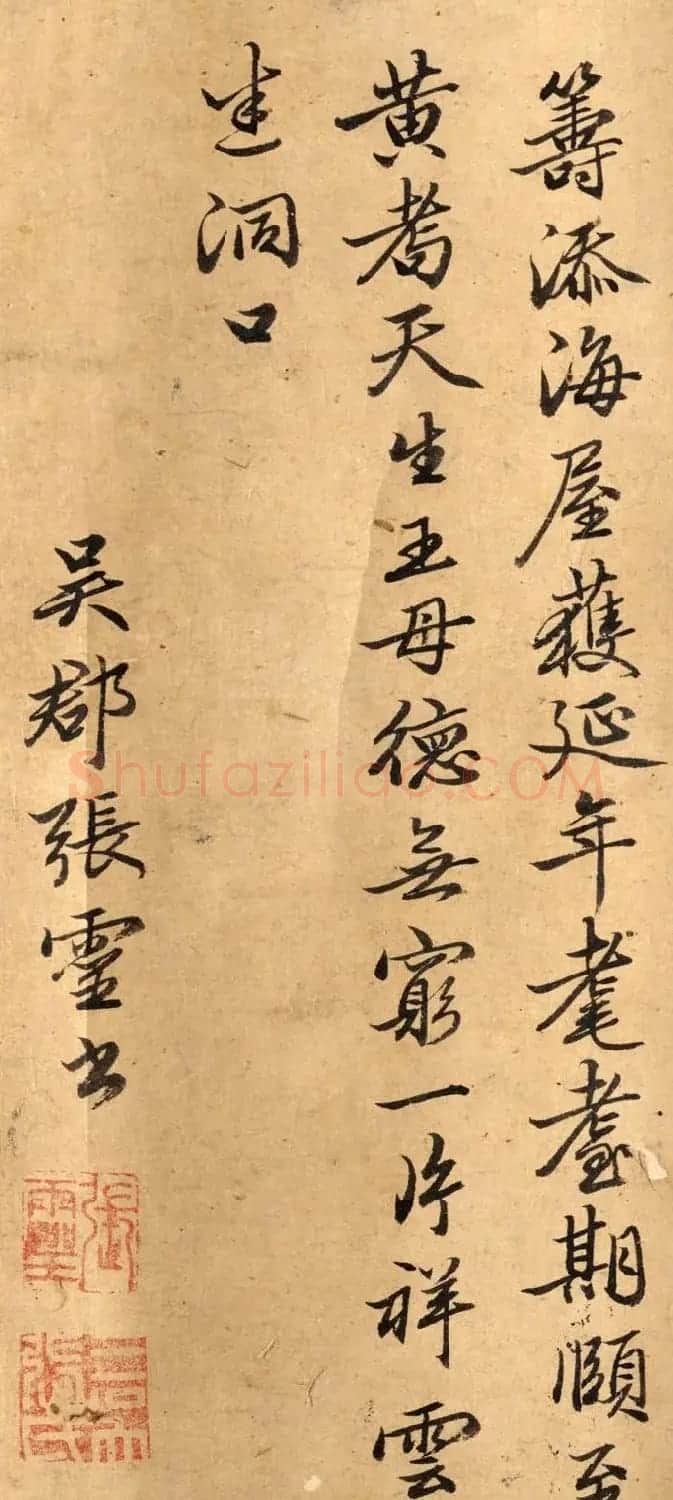 籌添海屋獲延年耄耋期頤至
黄耇天生王母德無窮一片祥雲
迷洞口
吳郡張靈書
張靈
Shufaziliao.COM